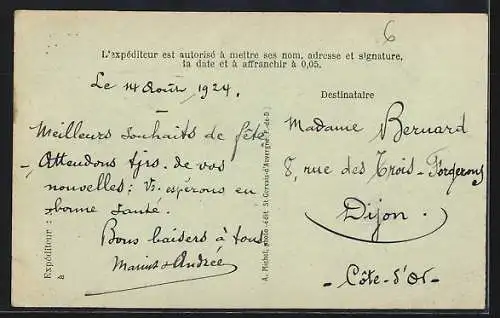 6
L'expéditeur est autorisé à mettre ses nom, adresse et signature,
la date et à affranchir à 0,05.
Le 14 Août 1924.
Meilleurs souhaits de fête
- Attendons tjrs. de vos
nouvelles; Vs. espérons en
bonne santé.
Bons baisers à tous
Marius & Andrée
Expéditeur :
à
A. Michel, photo-édit. St-Gervais-d'Auvergne (P.-de-D.)
Destinataire
Madame Bernard
8, rue des Trois-Forgerons
Dijon.
- Côte-d'Or -